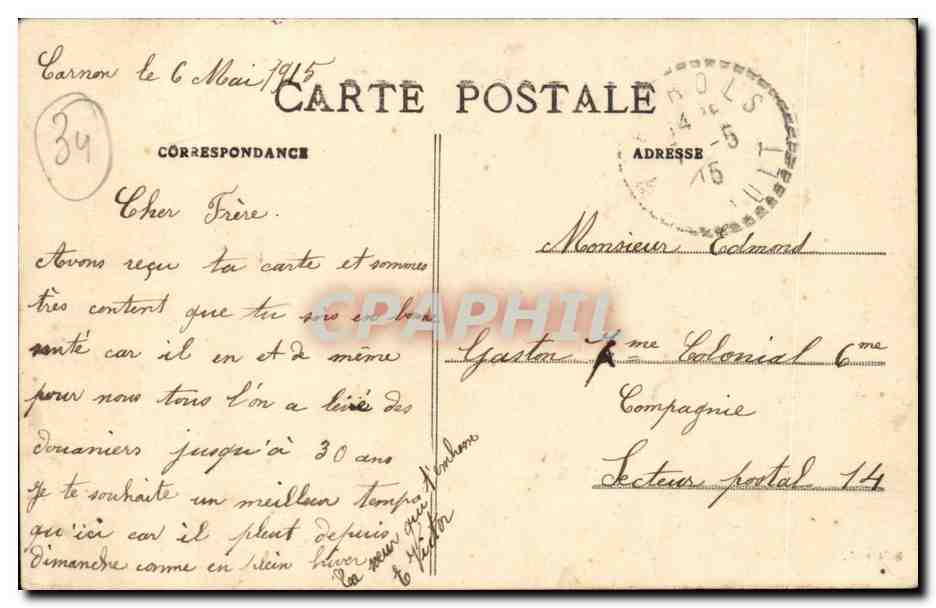 Carnon le 6 Mai 1915
34
CARTE POSTALE
CORRESPONDANCE
Cher Frère.
Avons reçu ta carte et sommes
très content que tu sois en bonne
santé car il en et de même
pour nous tous l'on a levé des
douaniers jusqu'à 30 ans
Je te souhaite un meilleur temps
qu'ici car il pleut depuis
dimanche comme en plein hiver
Ta soeur qui t'embrasse
Victor
ADRESSE
ROLS
14
-5
15
Monsieur Edmond
Gaston 7me Colonial 6me
Compagnie
Secteur postal 14
CPAPHIL